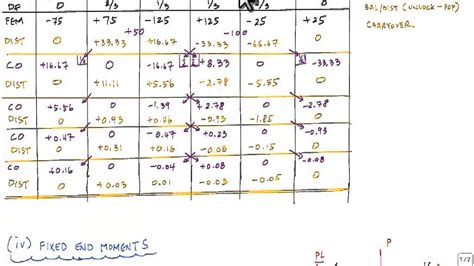 DF 0 2/3 1/3 1/3 2/3 0
FEM -75 +75 -125 +125 -25 +25
+50 -100
DIST 0 +33.33 +16.67 -33.33 -66.67 0
CO +16.67 ½ 0 -16.67 ½ ½ +8.33 0 ½ -33.33
DIST 0 +11.11 +5.56 -2.78 -5.55 0
CO +5.56 0 -1.39 +2.78 0 -2.78
DIST 0 +0.93 +0.46 -0.93 -1.85 0
CO +0.47 0 -0.47 +0.23 0 -0.93
DIST 0 +0.31 +0.16 -0.15 0
CO +0.16 0 -0.04 +0.08 0 -0.08
DIST 0 +0.03 0.01 -0.03 -0.05 0
BAL/DIST (UNLOCK - POP)
CARRYOVER
(iv) FIXED END MOMENTS
PL
P
1/2